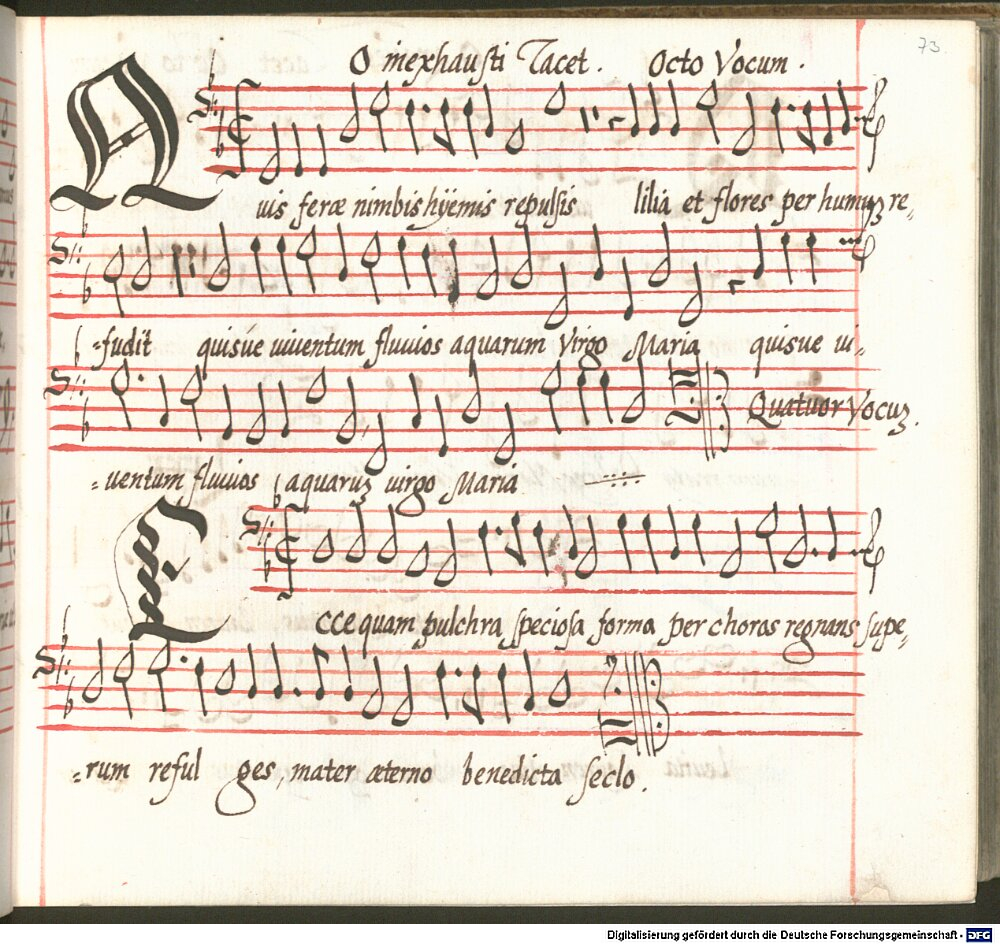 73
O inexhausti Tacet. Octo Vocum.
Quis feræ nimbis hijemis repulsis lilia et flores per humuz re-
-fudit quisue uiuentum fluuios aquarum Virgo Maria quisue ui-
Quatuor Vocuz.
-uentum fluuios aquaruz uirgo Maria
Ecce quam pulchra speciosa forma per choros regnans supe-
-rum reful ges, mater æterno benedicta seclo.
Digitalisierung gefördert durch die Deutsche Forschungsgemeinschaft - DFG